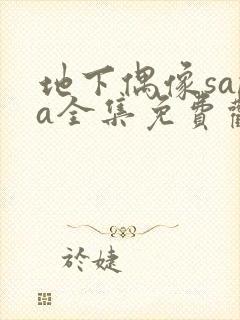 地下偶像sa
a全集免費
於婕